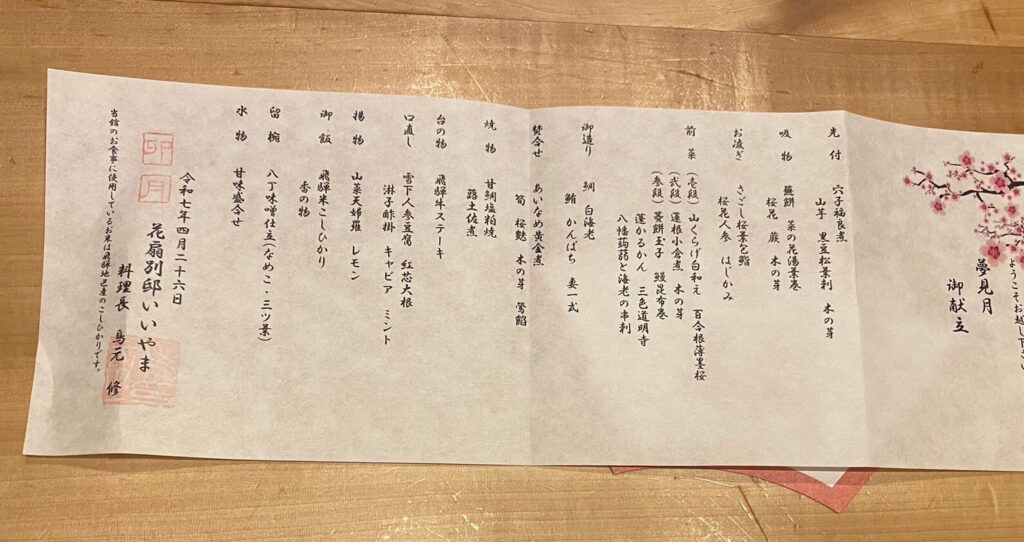 ようこそお越し下さい
夢見月
御献立
先付 穴子福良煮
山芋 黒豆松葉刺 木の芽
吸物 蕪餅 菜の花湯葉巻
桜花 蕨 木の芽
お凌ぎ さごし桜葉包鮨
桜花人参 はじかみ
前菜 (壱段) 山くらげ白和え 百合根薄墨桜
(弐段) 蓮根小倉煮 木の芽
(参段) 蕗餅玉子 鰻昆布巻
蓬かるかん 三色道明寺
八幡蒟蒻と海老の串刺
御造り 鯛 白海老
鮪 かんぱち 妻一式
焚合せ あいなめ黄金煮
筍 桜麩 木の芽 鶯餡
焼物 甘鯛塩粕焼
蕗土佐煮
台の物 飛騨牛ステーキ
口直し 雪下人参豆腐 紅芯大根
淋子酢掛 キャビア ミント
揚物 山菜天婦羅 レモン
御飯 飛騨米こしひかり
香の物
留椀 八丁味噌仕立(なめこ・三ツ葉)
水物 甘味盛合せ
令和七年四月二十六日
花扇別邸いいやま
料理長 鳥元 修
卯月
当館のお食事に使用しているお米は飛騨地区産のこしひかりです。